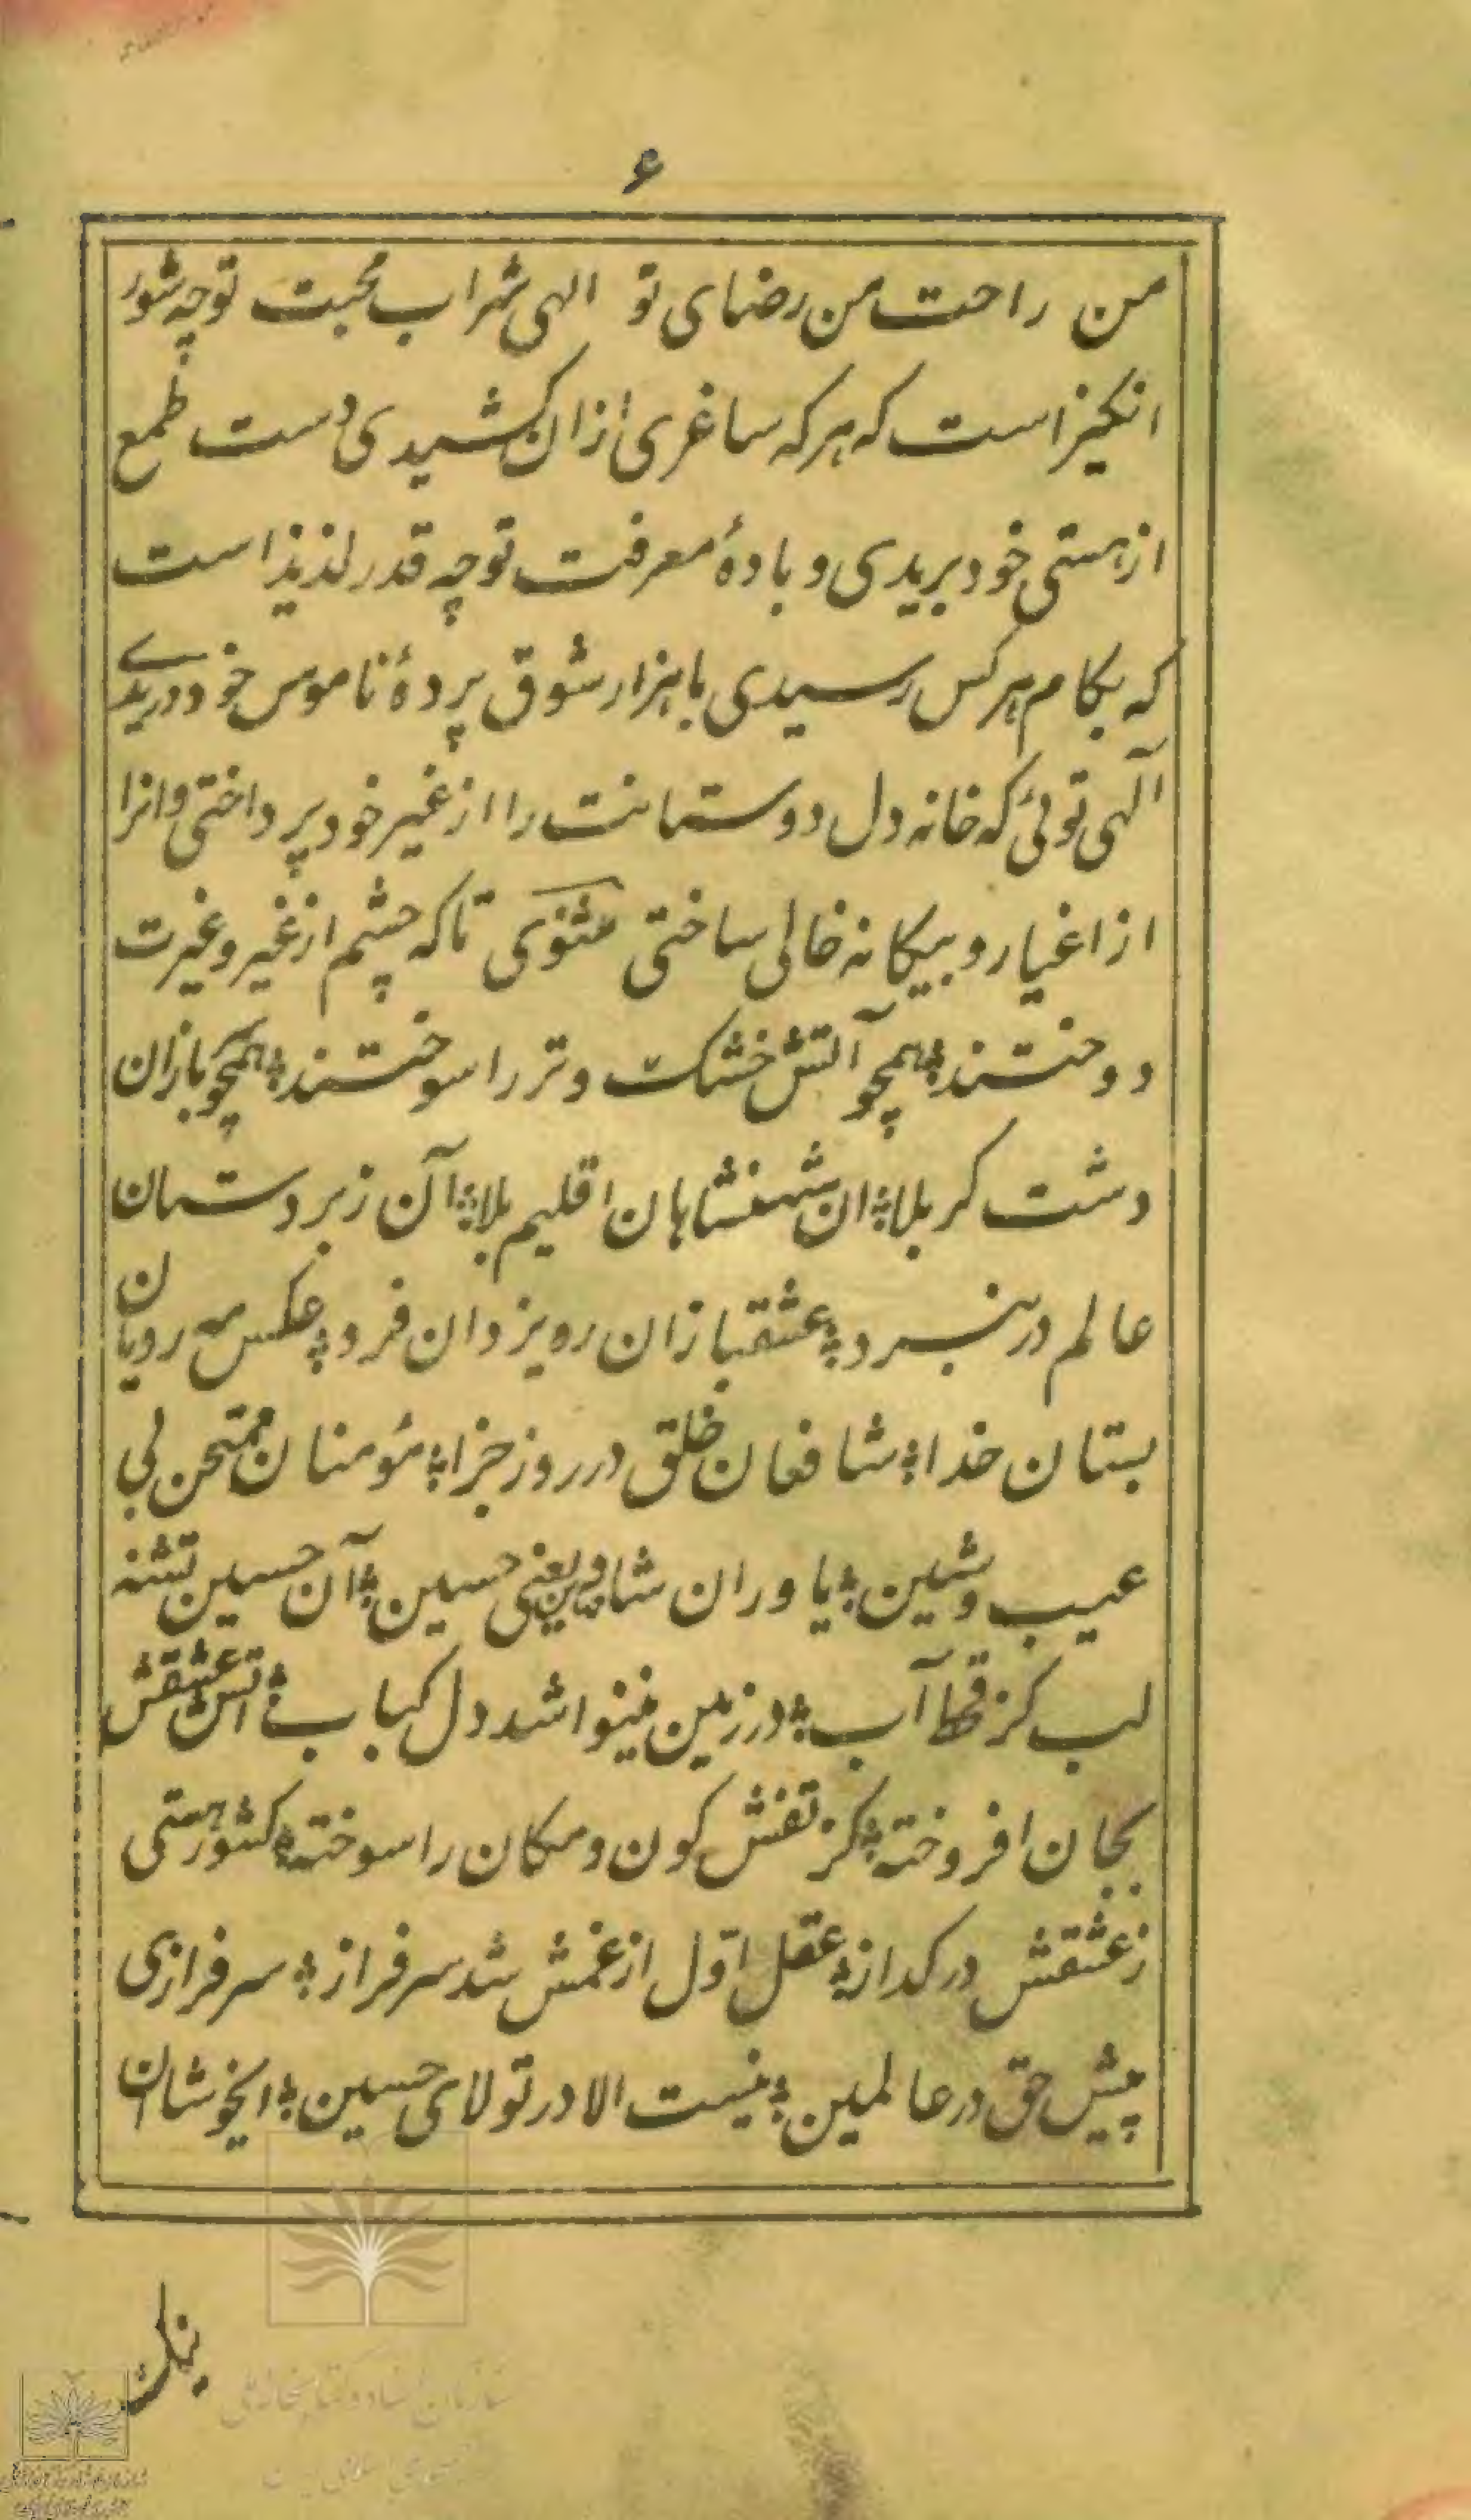 ۶
من راحت من رضای تو الهی شراب محبت تو چه شور
انکیز است که هر که ساغری ازان کشیدی دست طمع
از هستی خود بریدی و بادهٔ معرفت تو چه قدر لذیذ است
که بکام هر کس رسیدی با هزار شوق پردهٔ ناموس خود دریدی
آلهی توئی که خانه دل دوستانت را از غیر خود پرداختی وانرا
از اغیار و بیکانه خالی ساختی مثنوی تا که چشم از غیر و غیرت
دوختند ؛ همچو آتش خشک و تر را سوختند ؛ همچو بازان
دشت کربلا ؛ ان شهنشاهان اقلیم بلا ؛ آن زبردستان
عالم در نبرد ؛ عشقبازان ره یزدان فرد ؛ عکس مه رویان
بستان خدا ؛ شافعان خلق در روز جزا ؛ مؤمنان ممتحن بی
عیب و شین ؛ یاوران شاه دین یعنی حسین ؛ آن حسین تشنه
لب کز قحط آب ؛ در زمین نینوا شد دل کباب ؛ اتش عشقش
بجان افروخته ؛ کز تفش کون و مکان را سوخته ؛ کشور هستی
ز عشقش در کداز ؛ عقل اوّل از غمش شد سرفراز ؛ سرفرازی
پیش حق در عالمین ؛ نیست الا در تولای حسین ؛ ایخوشا ان